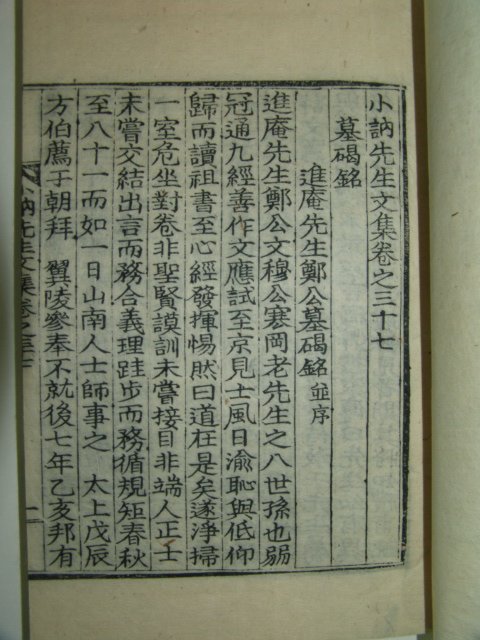 小訥先生文集卷之三十七
墓碣銘
進庵先生鄭公墓碣銘 並序
進庵先生鄭公文穆公寒岡老先生之八世孫也弱
冠通九經善作文應試至京見士風日渝恥與低仰
歸而讀祖書至心經發揮惕然曰道在是矣遂淨掃
一室危坐對卷非聖賢謨訓未嘗接目非端人正士
未嘗交結出言而務合義理跬步而務循規矩春秋
至八十一而如一日山南人士師事之 太上戊辰
方伯薦于朝拜 翼陵參奉不就後七年乙亥邦有
小訥先生文集卷之三十七
一